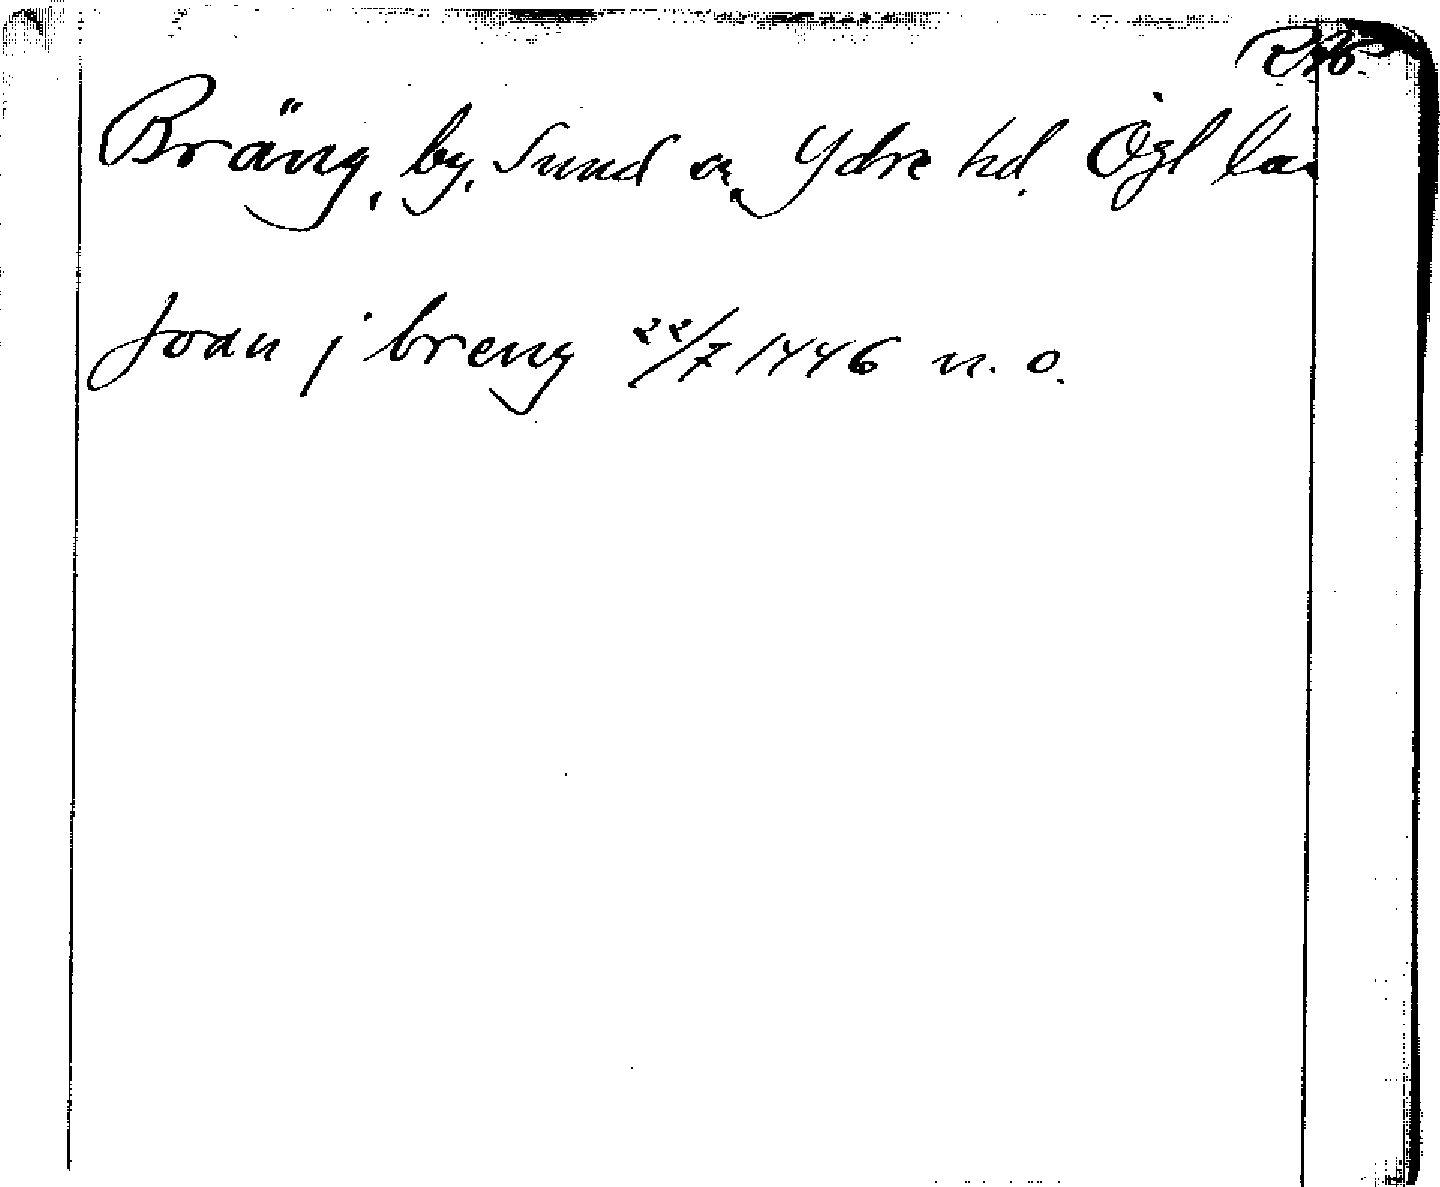 Bräng, by, Sund sn, Ydre hd. Ögl la
Joan j breng 22/7 1446 n. o.